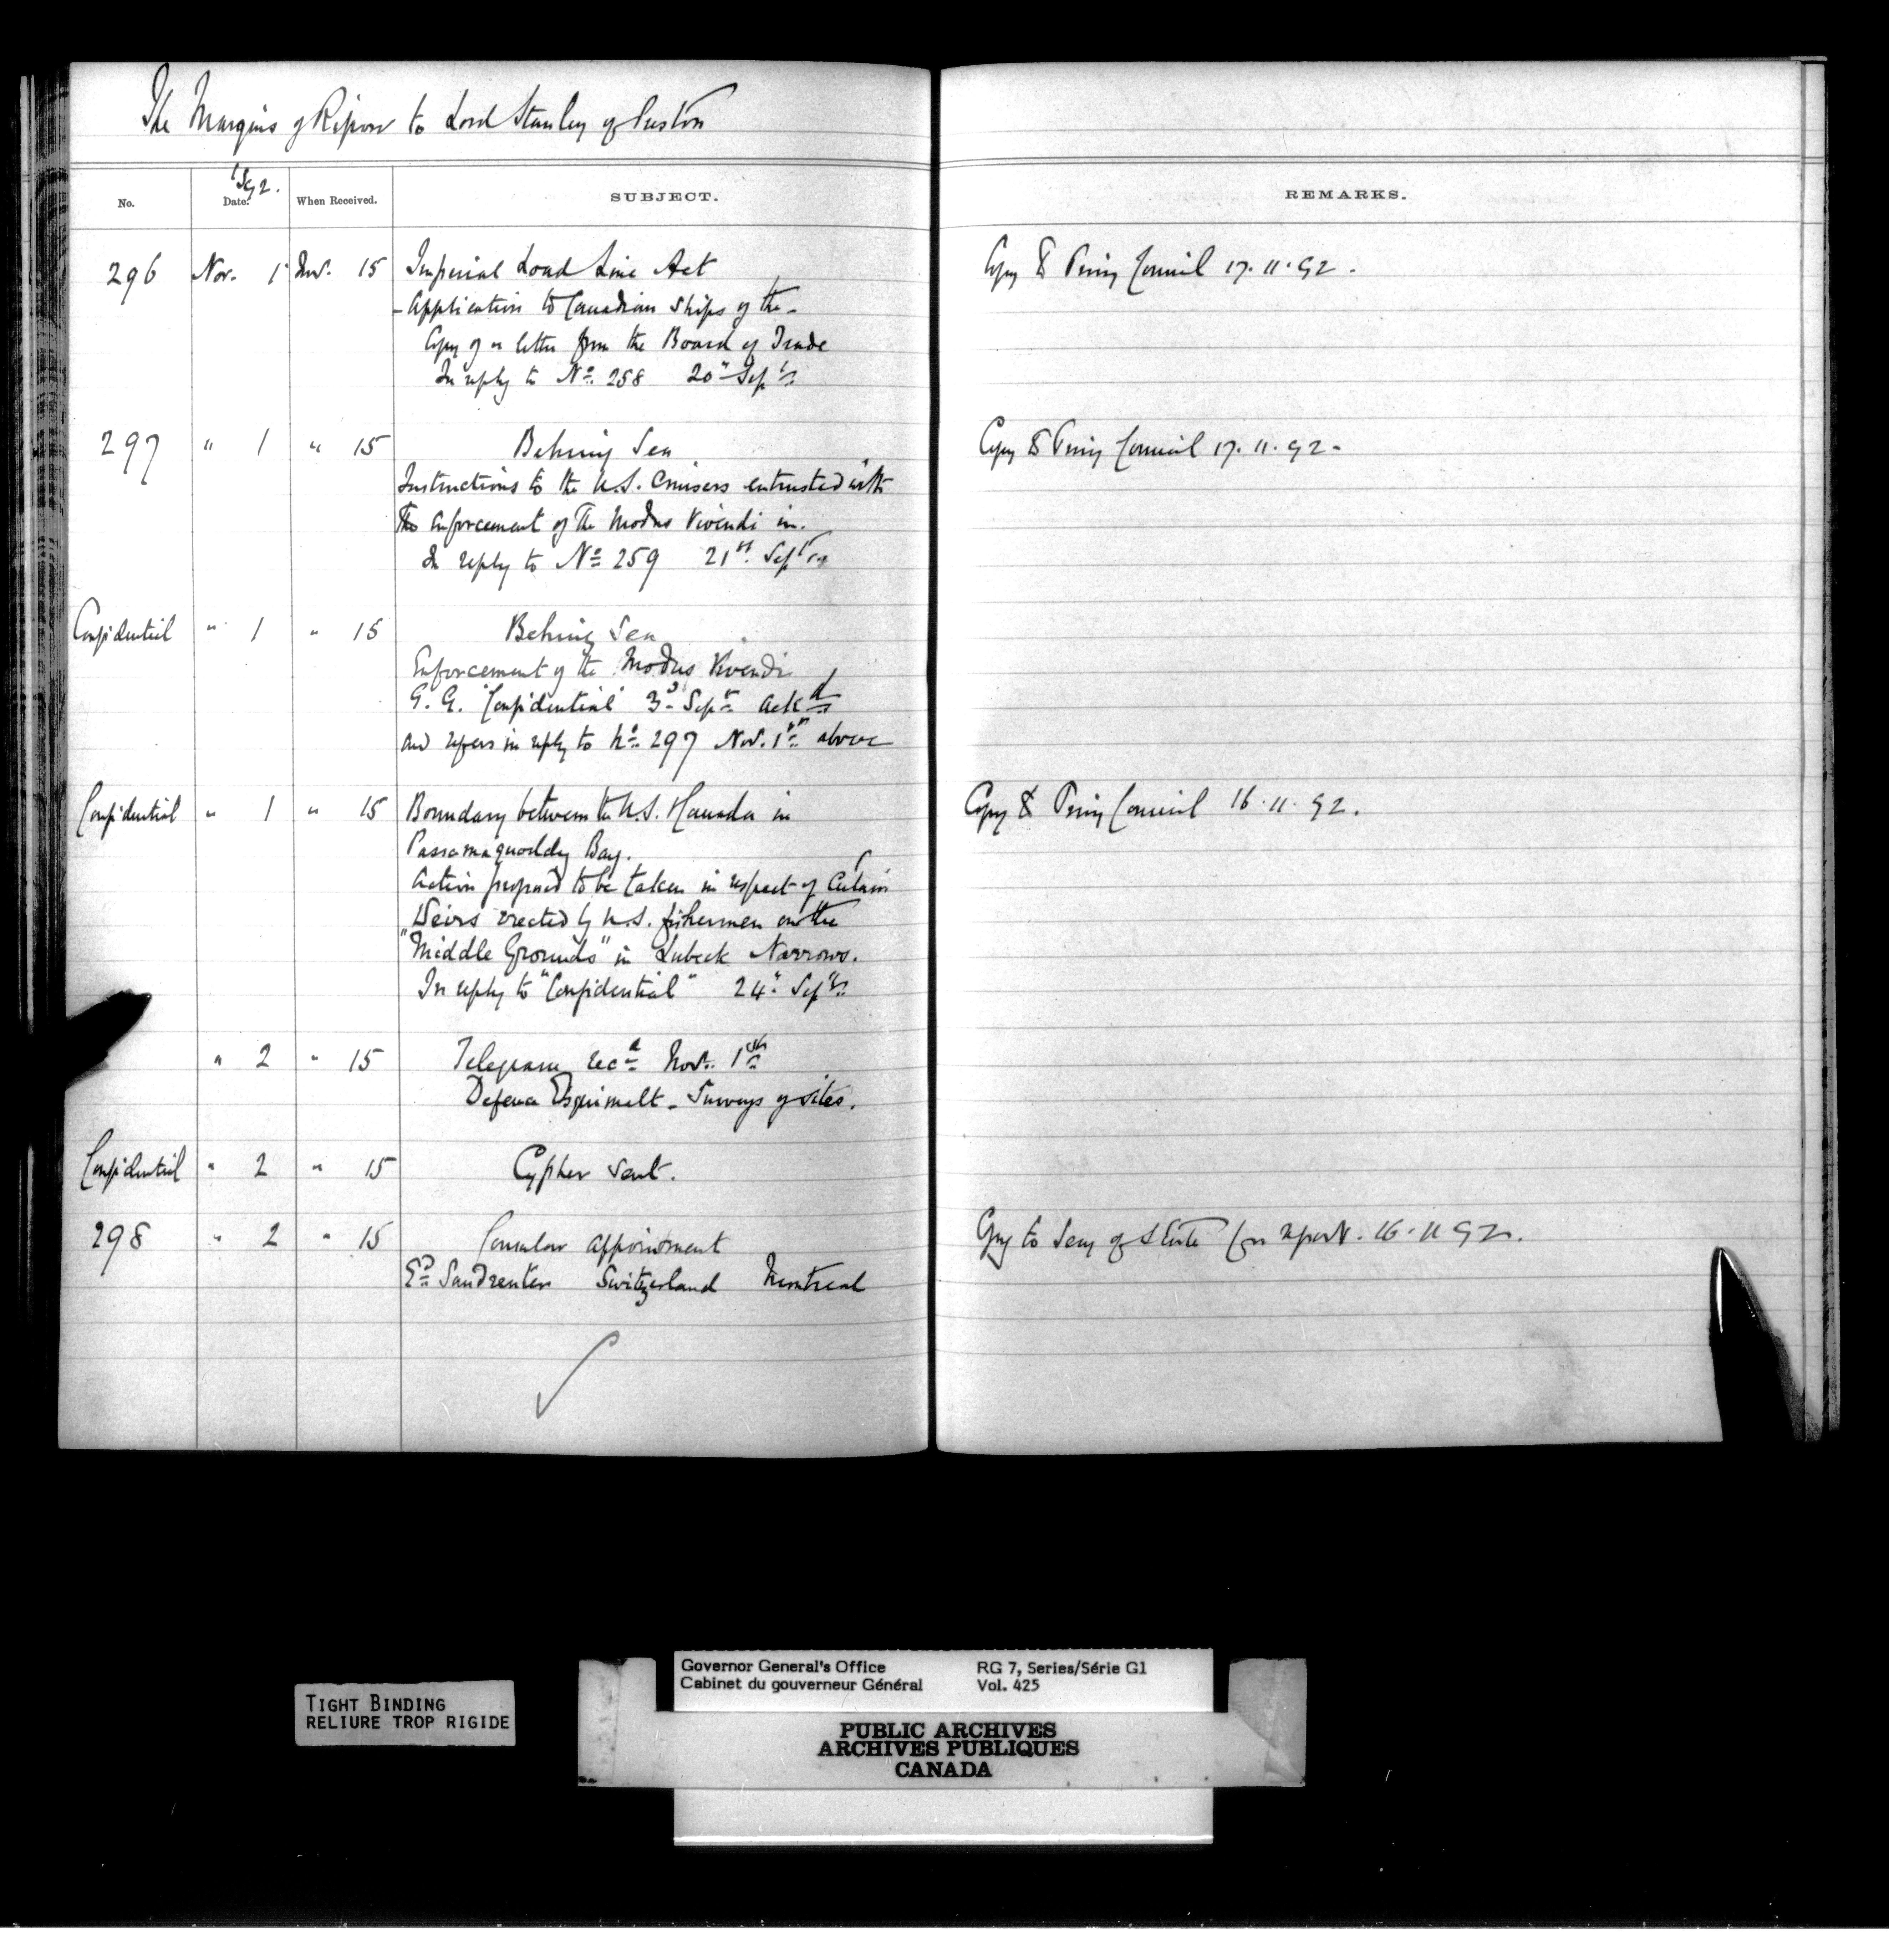 The Marquis of Ripon to Lord Stanley of Preston
1892.
No. Date. When Received. SUBJECT. REMARKS.
296 Nov. 1 Nov. 15 Imperial Load Line Act Copy to Privy Council 17.11.92.
- Application to Canadian Ships of the -
Copy of a letter from the Board of Trade
In reply to No. 258 20" Septr.
297 " 1 " 15 Behring Sea Copy to Privy Council 17.11.92-
Instructions to the U.S. Cruisers entrusted with
the enforcement of the Modus Vivendi in.
In reply to No. 259 21st. Septr.
Confidential " 1 " 15 Behring Sea
Enforcement of the Modus Vivendi
G.G. "Confidential" 3d Septr. ackd
and refers in reply to No. 297 Nov. 1st. above
Confidential " 1 " 15 Boundary between the U.S. & Canada in Copy to Privy Council 16.11.92.
Passamaquoddy Bay.
Action proposed to be taken in respect of Certain
Weirs erected by U.S. fishermen on the
"Middle Grounds" in Lubeck Narrows.
In reply to "Confidential" 24" Septr.
" 2 " 15 Telegram recd Nov. 1st
Defence Esquimalt - Surveys of sites.
Confidential " 2 " 15 Cypher sent.
298 " 2 " 15 Consular appointment Copy to Secy of State for report. 16.11.92.
Ed. Sandreuter Switzerland Montreal
TIGHT BINDING
RELIURE TROP RIGIDE
Governor General's Office RG 7, Series/Série G1
Cabinet du gouverneur Général Vol. 425
PUBLIC ARCHIVES
ARCHIVES PUBLIQUES
CANADA